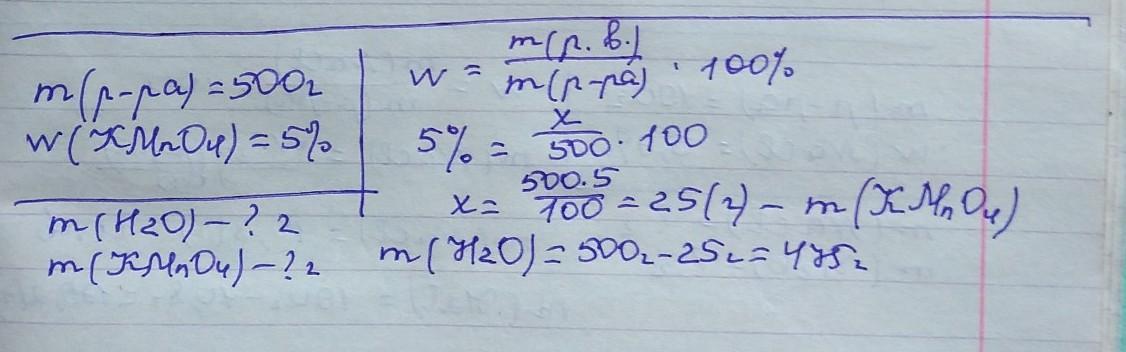 m(р-ра) = 500г
w(KMnO4) = 5%
m(H2O) - ? г
m(KMnO4) - ? г
w = m(р.в.) / m(р-ра) · 100%
5% = x / 500 · 100
x = 500.5 / 100 = 25(г) - m(KMnO4)
m(H2O) = 500г - 25г = 475г